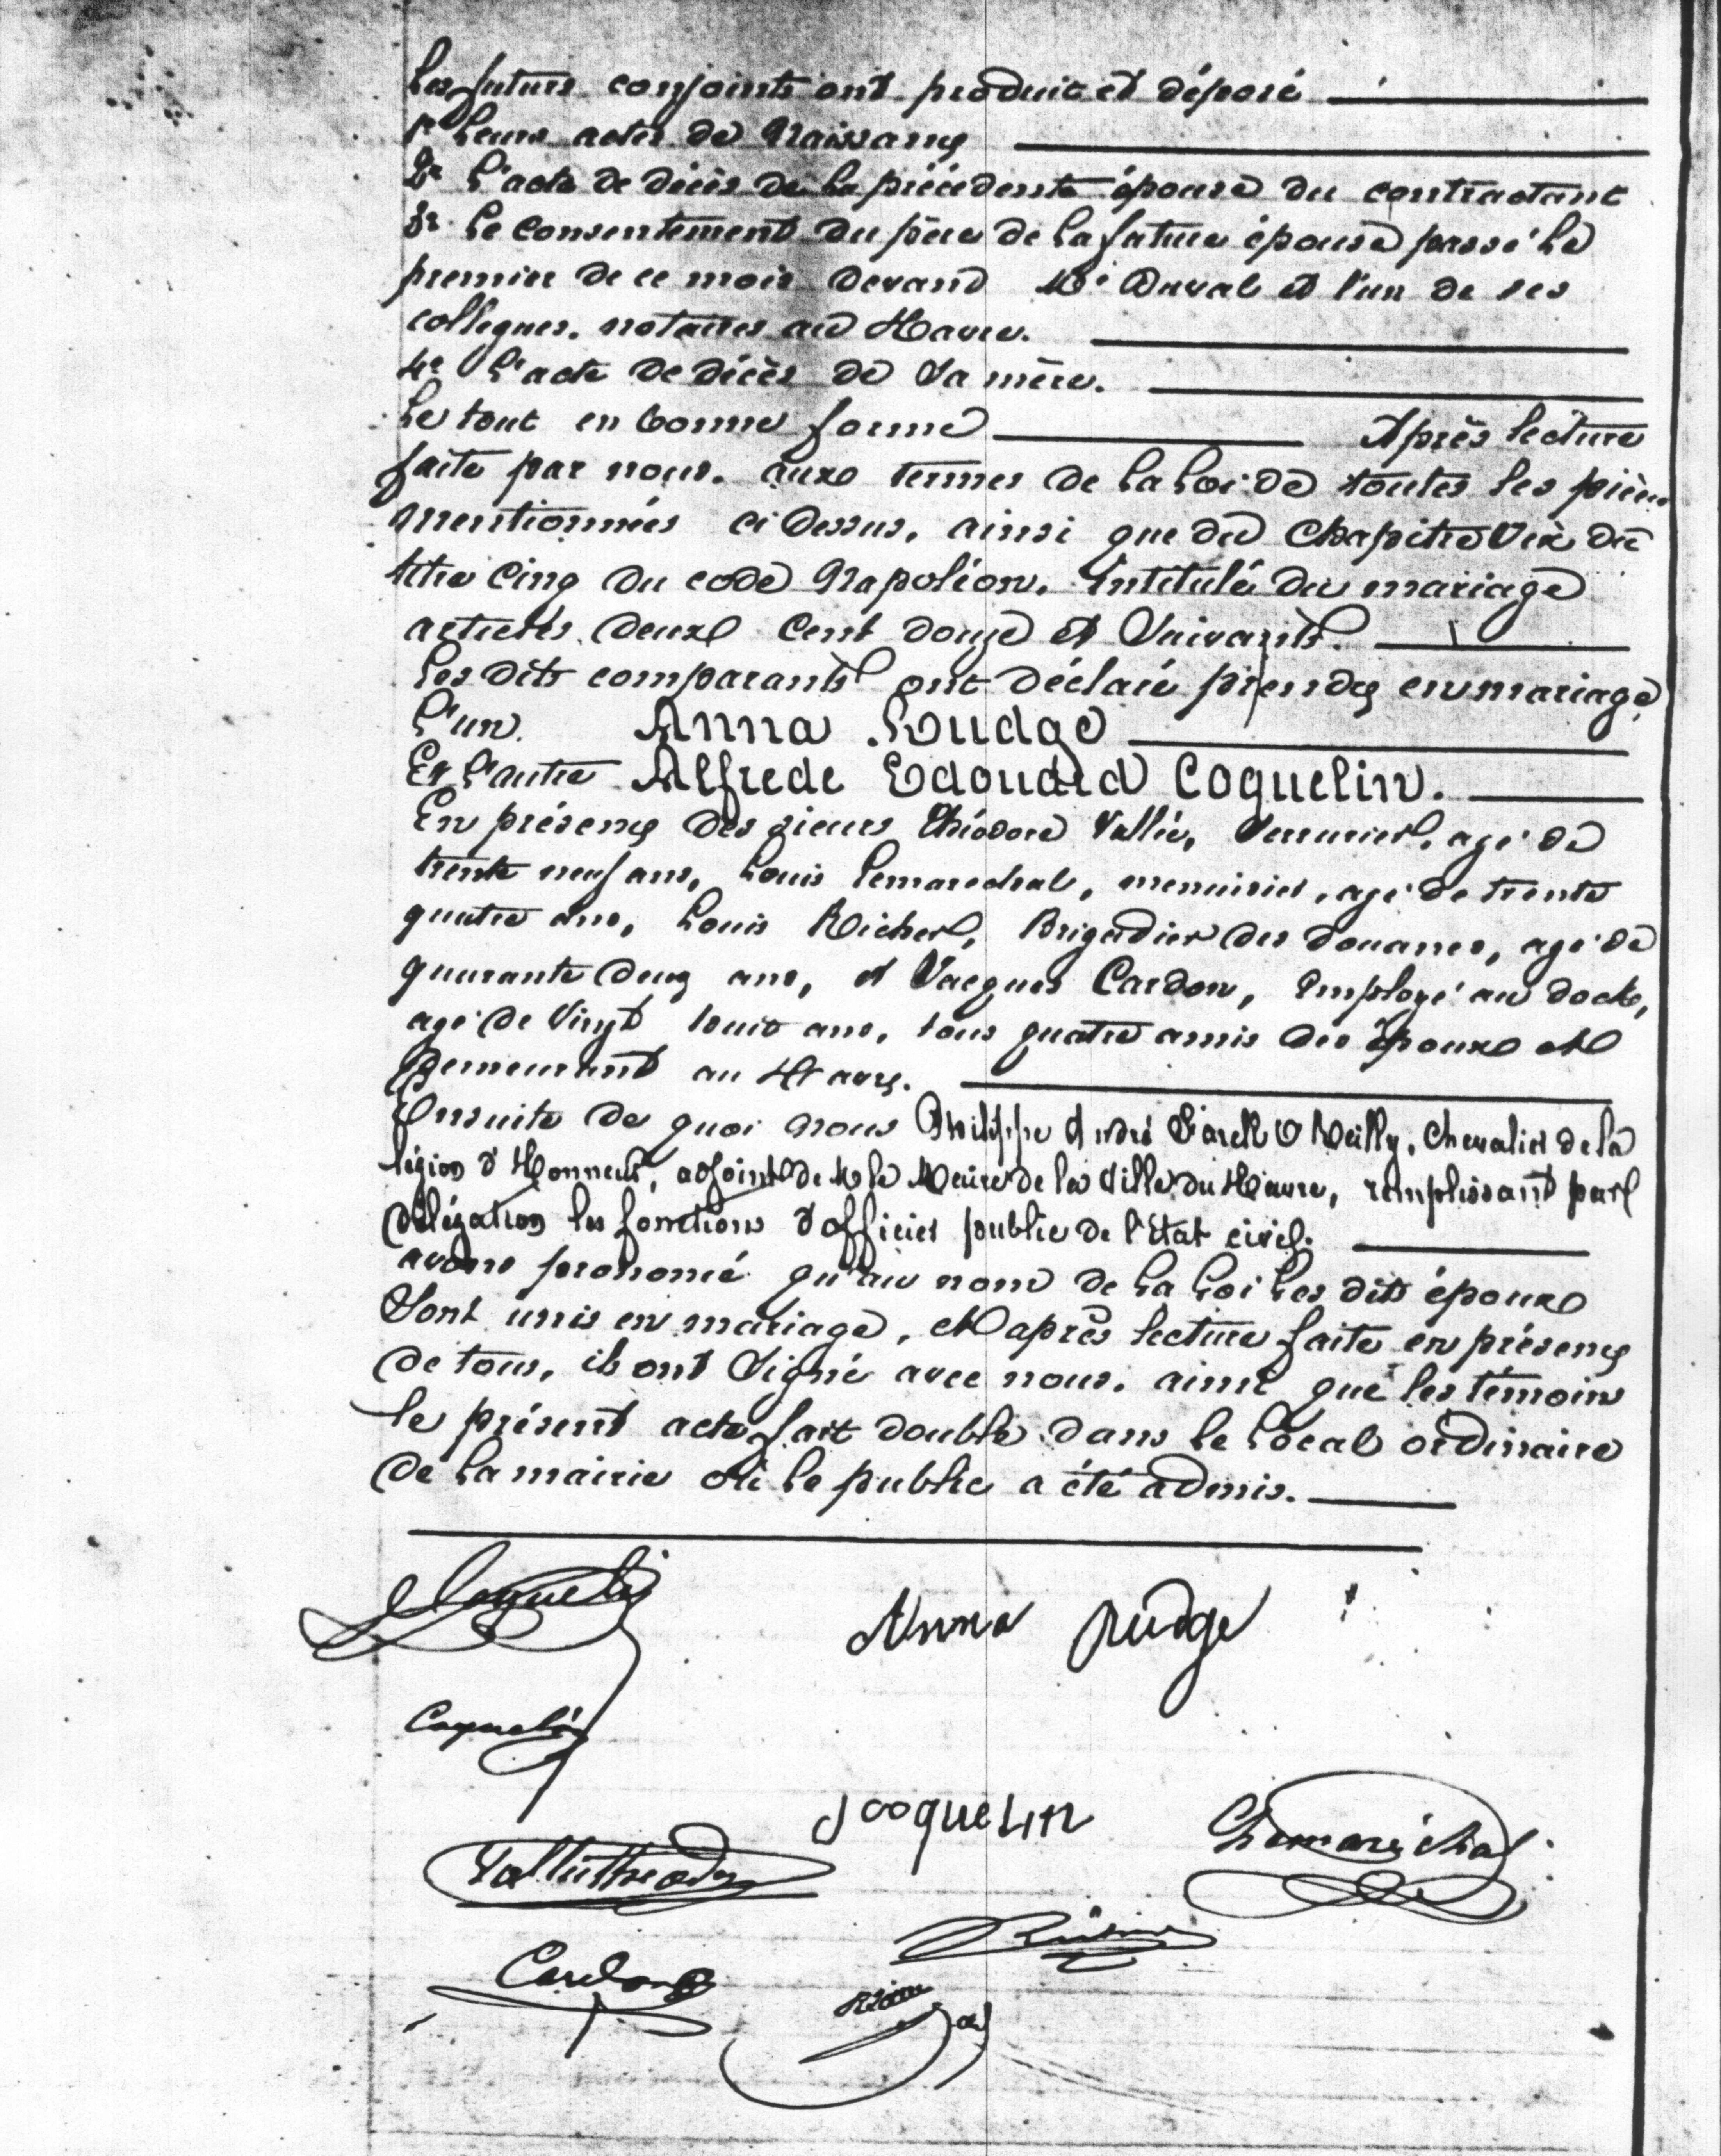 Les futurs conjoints ont produit et déposé
1º Leurs actes de Naissance
2º L'acte de décès de la précédente épouse du contractant
3º Le consentement du père de la future épouse passé le
premier de ce mois devant Me Duval et l'un de ses
collegues. notaires au Havre.
4º L'acte de décès de sa mère.
Le tout en bonne forme Après lecture
faite par nous. aux termes de la Loi de toutes les pièces
mentionnées ci dessus, ainsi que du Chapitre Six du
titre Cinq du code Napoléon. Intitulé du mariage
articles deux Cent douze et Suivants.
Les dits comparants ont déclaré prendre en mariage
L'un. Anna Rudge
Et L'autre Alfrede Edouard Coquelin.
En présence des sieurs Théodore Vallée, Serrurier, agé de
trente neuf ans, Louis Lemarechal, menuisier, agé de trente
quatre ans, Louis Richer, Brigadier des douanes, agé de
quarante deux ans, et Jacques Cardon, Employé au dock,
agé de Vingt huit ans, tous quatre amis des Epoux et
Demeurant au Havre.
Ensuite de quoi nous Philippe André O Reilly, Chevalier de la
légion d'Honneur, adjoint de M le Maire de la Ville du Havre, remplissant par
délégation les fonctions d'officier public de l'état civil.
avons prononcé qu'au nom de la Loi les dits époux
Sont unis en mariage, et après lecture faite en présence
de tous, ils ont Signé avec nous. ainsi que les témoins
le présent acte fait double dans le local ordinaire
de la mairie où le public a été admis.
Coquelin
Anna Rudge
Coquelin
J Coquelin
Lemaréchal
Vallée Theodore
Cardon